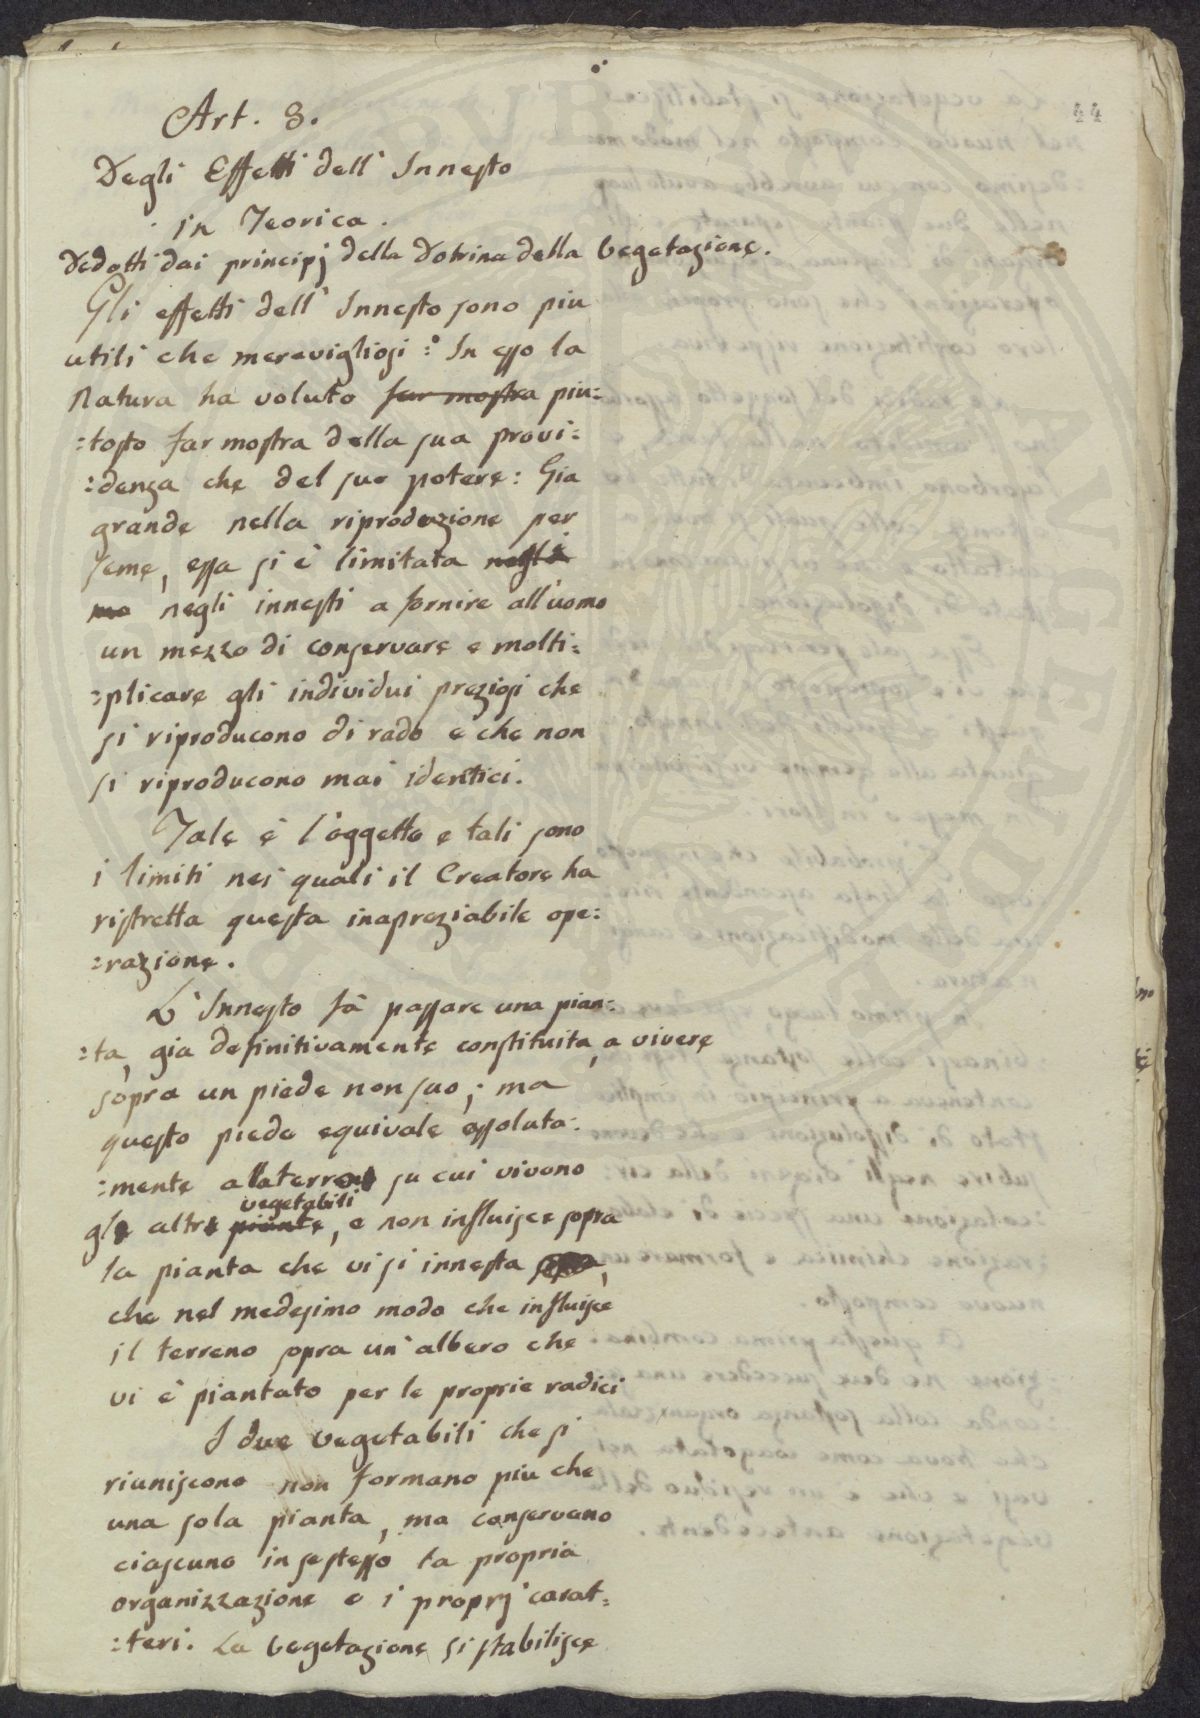 44
Art. 8.
Degli Effetti dell' Innesto
in Teorica.
dedotti dai principj della Dotrina della Vegetazione.
Gli effetti dell' Innesto sono piu
utili che meravigliosi : In esso la
Natura ha voluto far mostra piu:
:tosto far mostra della sua provi:
:denza che del suo potere: Gia
grande nella riproduzione per
seme, essa si è limitata negli
negli innesti a fornire all'uomo
un mezzo di conservare e molti:
:plicare gli individui preziosi che
si riproducono di rado e che non
si riproducono mai identici.
Tale è l'oggetto e tali sono
i limiti nei quali il Creatore ha
ristretta questa inapreziabile ope:
:razione.
L'Innesto fà passare una pian:
:ta, gia definitivamente constituita, a vivere
sopra un piede non suo; ma
questo piede equivale assoluta:
:mente al terreno su cui vivono
vegetabili
gli altri piante, e non influisce sopra
la pianta che vi si innesta
che nel medesimo modo che influisce
il terreno sopra un'albero che
vi è piantato per le proprie radici
I due vegetabili che si
riuniscono non formano piu che
una sola pianta, ma conservano
ciascuno in sestesso la propria
organizzazione e i proprj carat:
:teri. La vegetazione si stabilisce